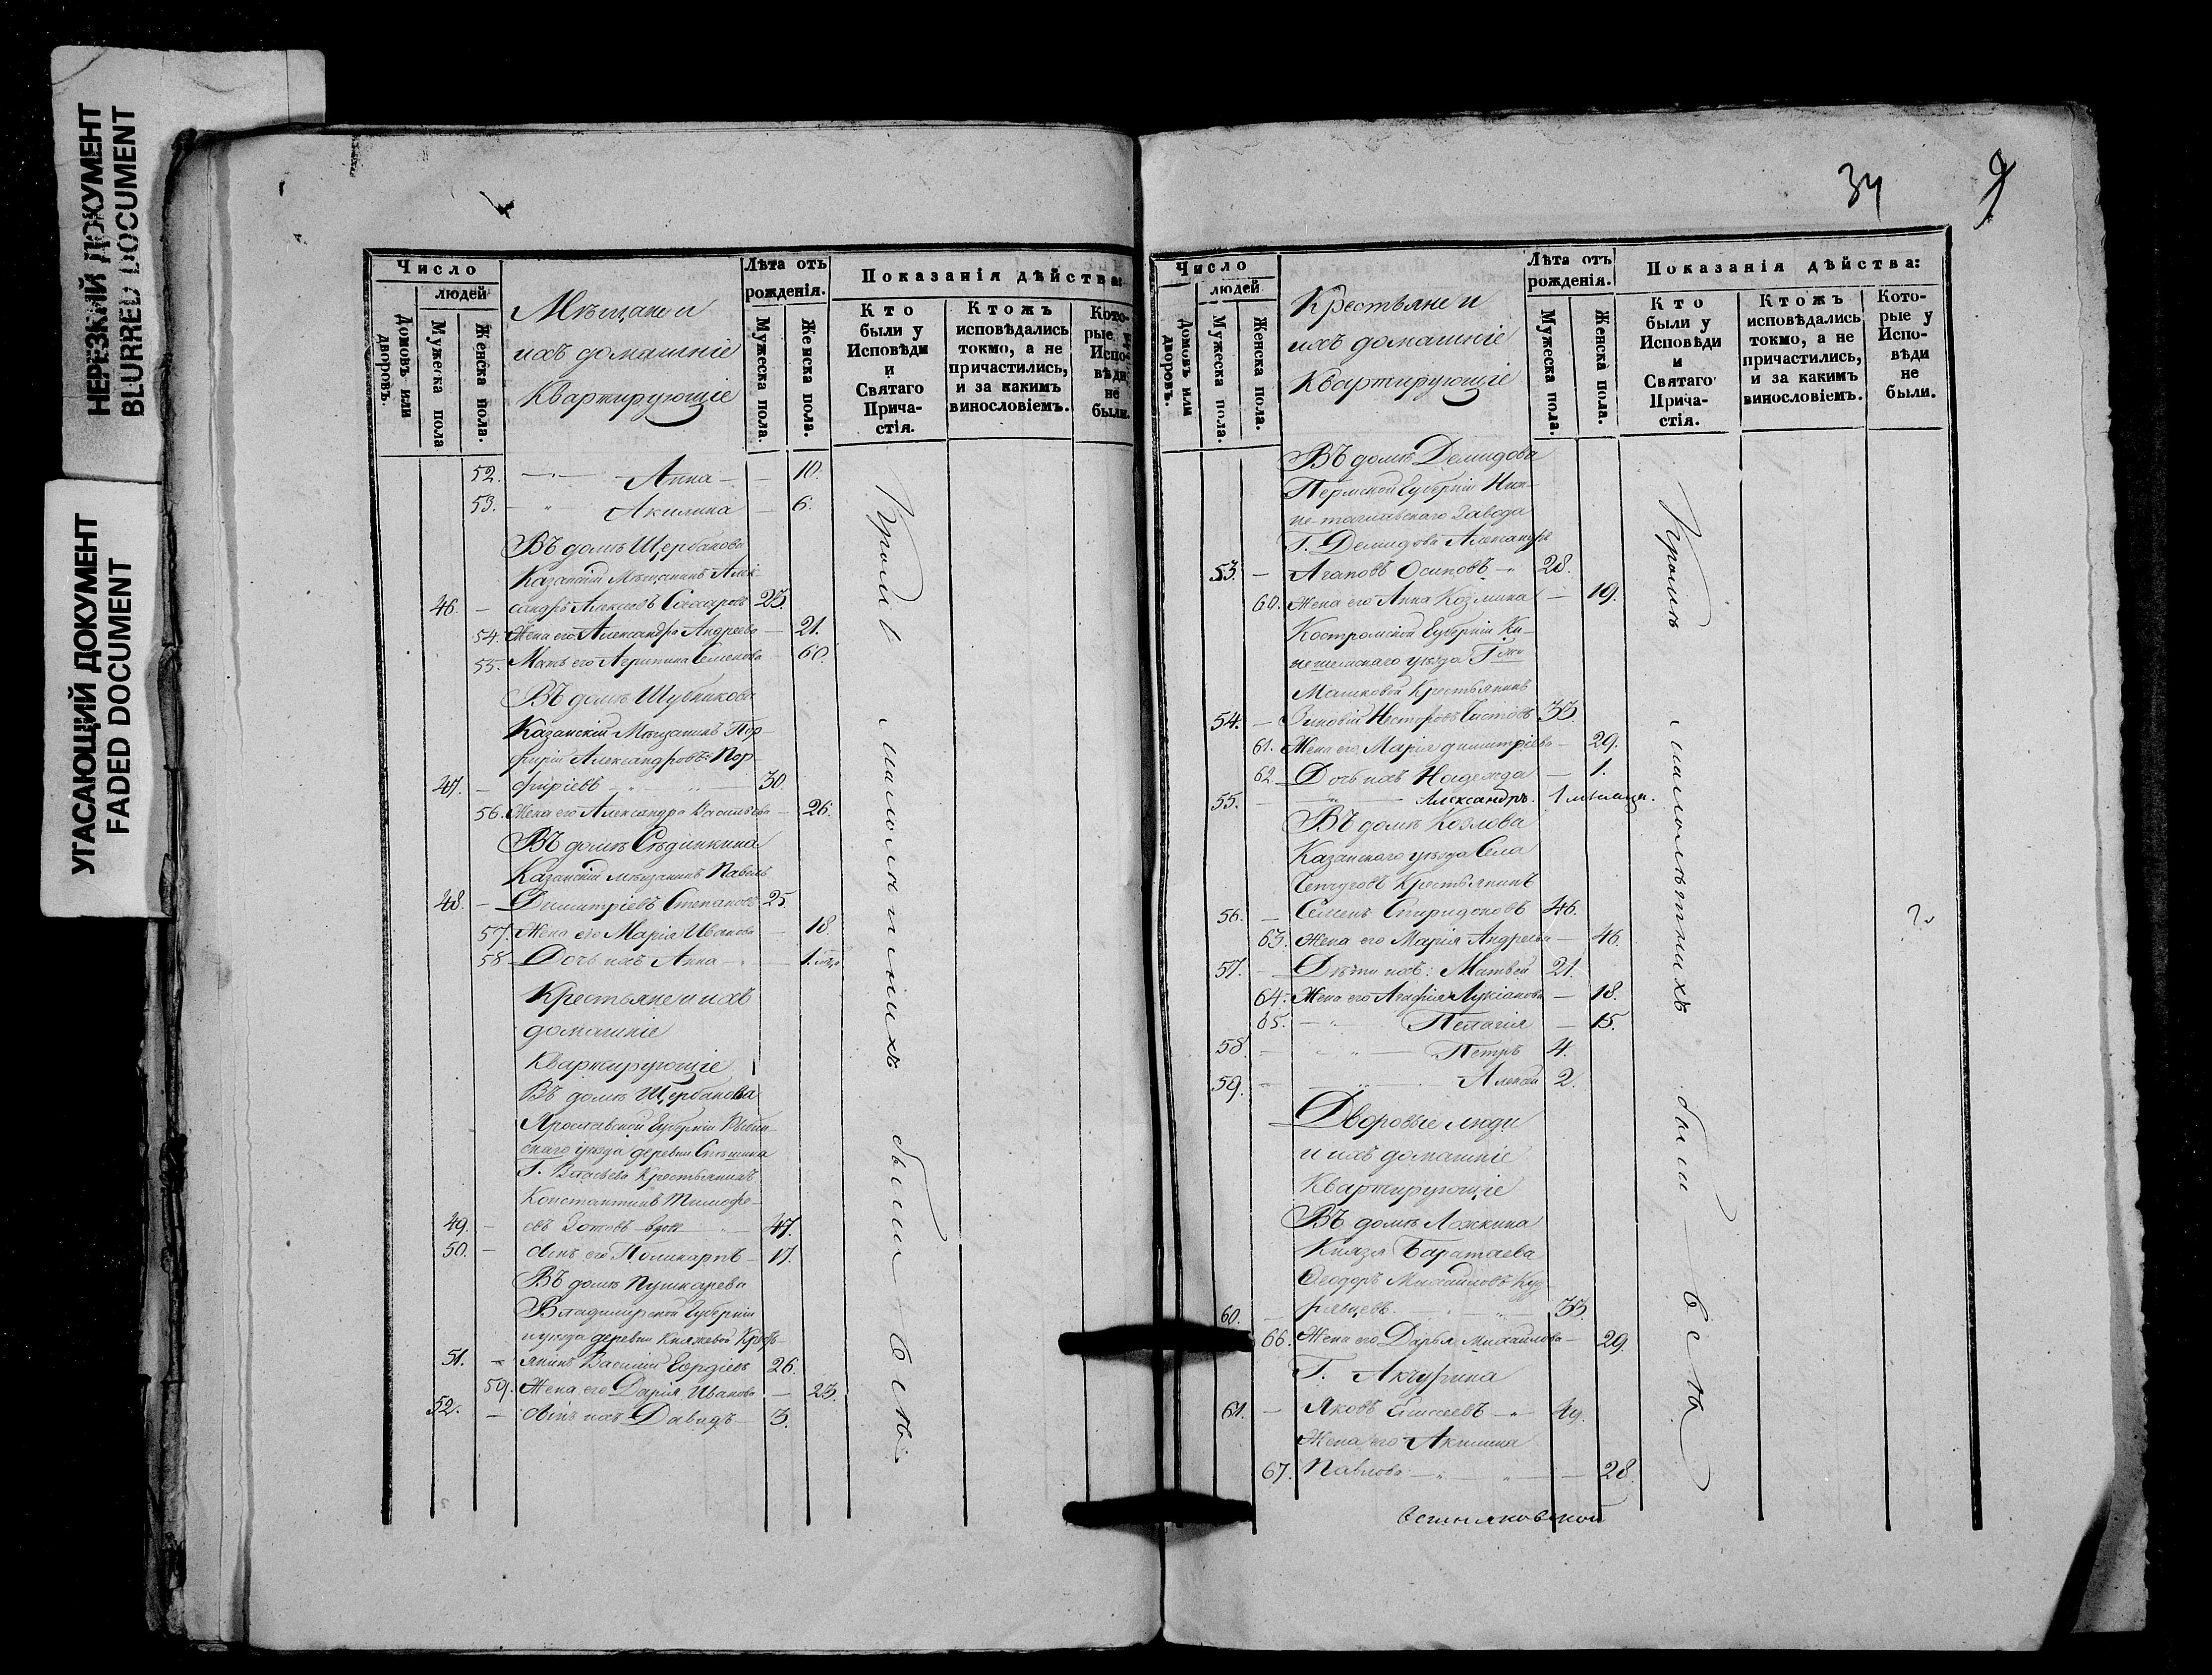 НЕРЕЗКИЙ ДОКУМЕНТ
BLURRED DOCUMENT
УГАСАЮЩИЙ ДОКУМЕНТ
FADED DOCUMENT
Число
людей
Домовъ или дворовъ.
Мужеска пола
Женска пола.
Мѣщане и
ихъ домашніе
Квартирующіе
Лѣта отъ
рожденія.
Мужеска пола.
Женска пола.
Показанія дѣйства:
Кто
были у
Исповѣди
и
Святаго
Прича-
стія.
Ктожъ
исповѣдались
токмо, а не
причастились,
и за какимъ
винословіемъ.
Кото-
рые у
Испо-
вѣди
не
были.
52. Анна 10.
53. Акилина 6.
Въ домѣ Щербакова
Казанскій Мѣщанинъ Алек-
46. сандръ Алексѣевъ 23.
54. Жена его Александра Андреева 21.
55. Мать его Агрипина Семенова 60.
Въ домѣ Шубникова
Казанскій Мѣщанинъ Пор-
фирій Александровъ Пор-
47. фиріевъ 30.
56. Жена его Александра Васильева 26.
Въ домѣ
Казанскій мѣщанинъ Павелъ
48. Димитріевъ Степановъ 25.
57. Жена его Марія Иванова 18.
58. Дочь ихъ Анна 1.
Крестьяне и ихъ
домашніе
Квартирующіе
Въ домѣ Щербакова
Ярославской Губерніи Рыбин-
скаго уѣзда деревни
Г. Крестьянинъ
Константинъ Тимофе-
49. евъ Зотовъ вдовъ 47.
50. Сынъ его Поликарпъ 17.
Въ домѣ Пушкарева
Владимірской Губерніи
и уѣзда деревни Княжевой Кресть-
51. янинъ Василій 26.
59. Жена его Дарія Иванова 23.
52. Сынъ ихъ Давидъ 3.
Кромѣ малолѣтнихъ были всѣ
34
9
Число
людей
Домовъ или дворовъ.
Мужеска пола.
Женска пола.
Крестьяне и
ихъ домашніе
Квартирующіе
Лѣта отъ
рожденія.
Мужеска пола.
Женска пола.
Показанія дѣйства:
Кто
были у
Исповѣди
и
Святаго
Прича-
стія.
Ктожъ
исповѣдались
токмо, а не
причастились,
и за какимъ
винословіемъ.
Кото-
рые у
Испо-
вѣди
не
были.
Въ домѣ Демидова
Пермской Губерніи Ниж-
не-тагильскаго Завода
Г. Демидова Александръ
53. Агаповъ Осиповъ 28.
60. Жена его Анна Козмина 19.
Костромской Губерніи Ки-
нешемскаго уѣзда Г-жи
Машковой Крестьянинъ
54. Зиновій Несторовъ 33.
61. Жена его Марія Димитріева 29.
62. Дочь ихъ Надежда 1.
55. Александръ. 1 мѣсяцъ.
Въ домѣ Козлова
Казанскаго уѣзда Села
Чепчуговъ Крестьянинъ
56. Семенъ Спиридоновъ 46.
63. Жена его Марія Андреева 46.
57. Дѣти ихъ: Матвей 21.
64. Жена его Агафія Лукіанова 18.
65. Пелагія 15.
58. Петръ 4.
59. Алексѣй 2.
Дворовые люди
и ихъ домашніе
Квартирующіе
Въ домѣ Ложкина
Князя Баратаева
Ѳеодоръ Михайловъ Куд-
60. рявцевъ 33.
66. Жена его Дарья Михайлова 29.
Г. Акчурина
61. Яковъ Елисеевъ 49.
Жена его Акилина
67. Павлова 28.
Кромѣ малолѣтнихъ были всѣ